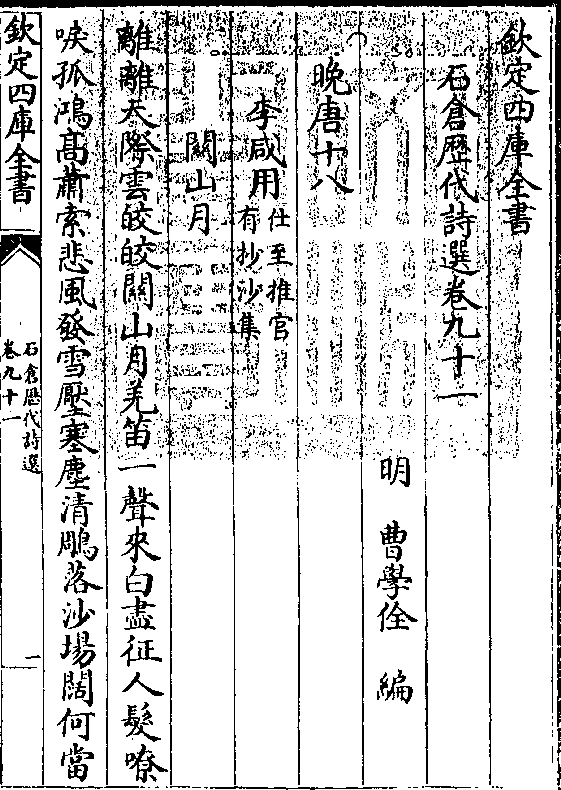 欽定四庫全書
石倉歴代詩選卷九十一
明 曹學佺 編
晚唐十八
李咸用
仕至推官
有抄沙集
關山月
離離天際雲皎皎關山月羌笛一聲來白盡征人髮嘹
唳孤鴻髙蕭索悲風發雪壓塞塵清鵰落沙場闊何當
欽定四庫全書
石倉歴代詩選
卷九十一
一